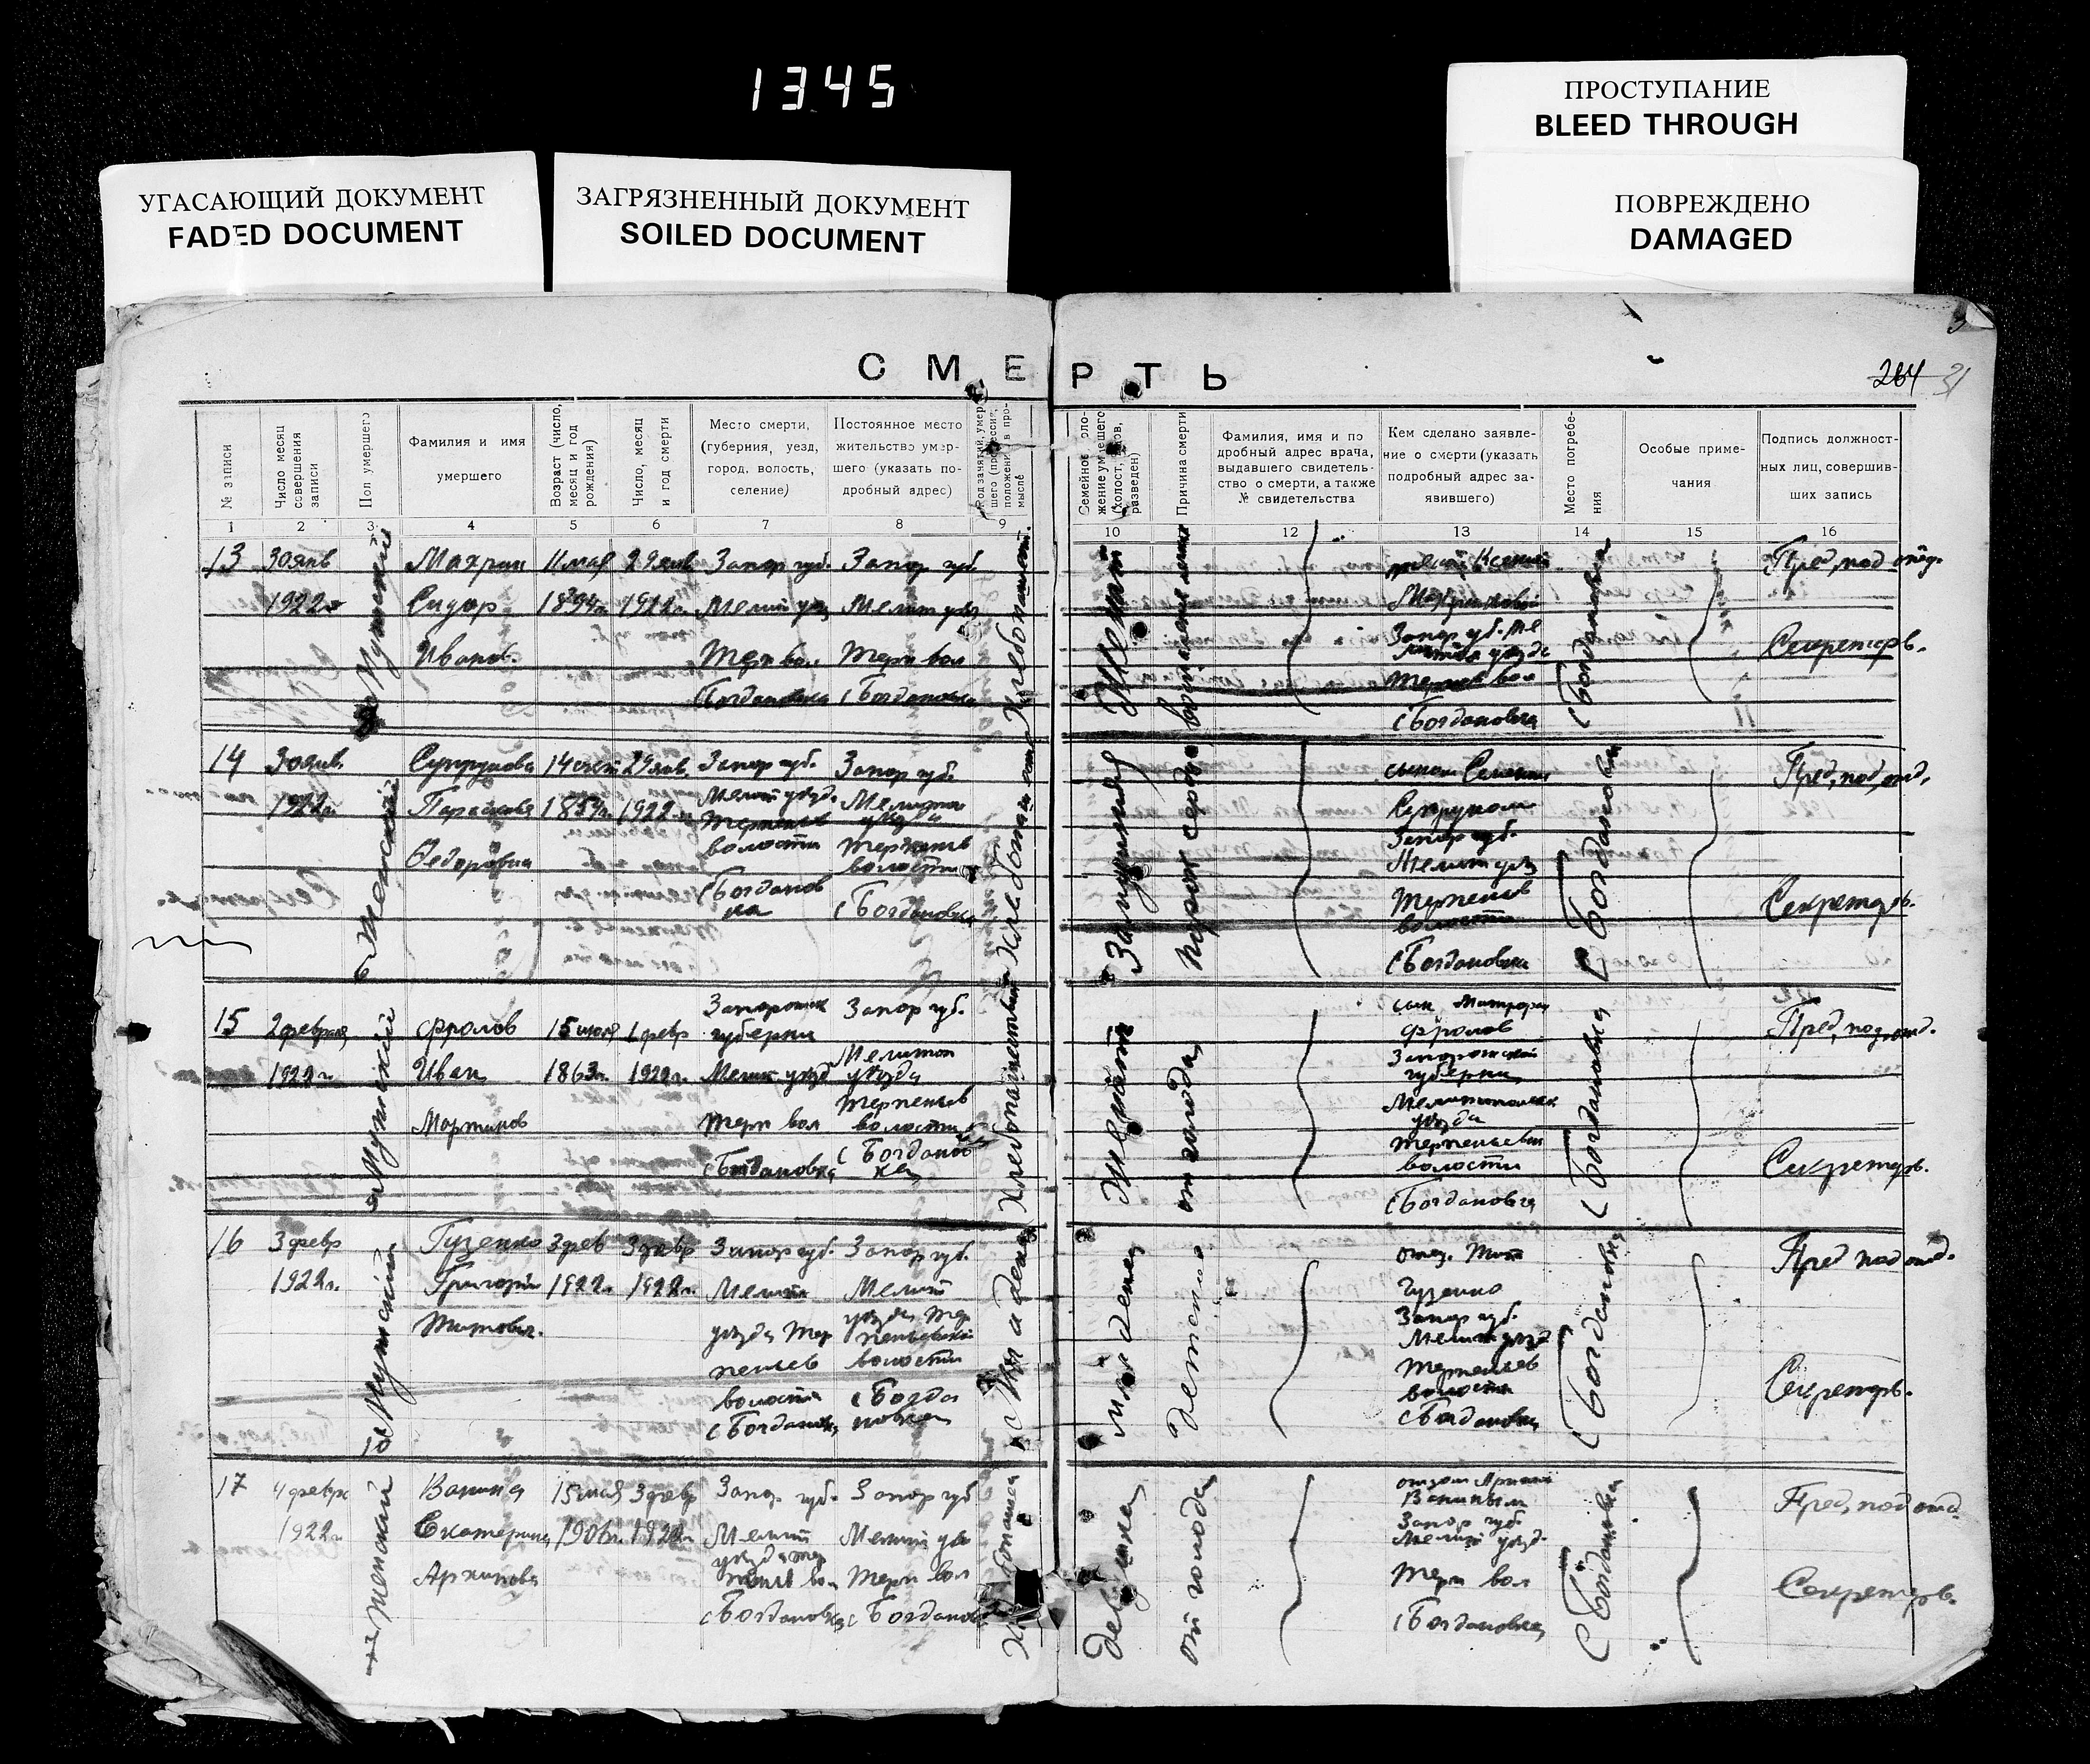 1345
ПРОСТУПАНИЕ
BLEED THROUGH
УГАСАЮЩИЙ ДОКУМЕНТ
FADED DOCUMENT
ЗАГРЯЗНЕННЫЙ ДОКУМЕНТ
SOILED DOCUMENT
ПОВРЕЖДЕНО
DAMAGED
СМЕРТЬ
264 31
№ записи
Число месяц
совершения
записи
Пол умершего
Фамилия и имя
умершего
Возраст (число,
месяц и год
рождения)
Число, месяц
и год смерти
Место смерти,
(губерния, уезд,
город, волость,
селение)
Постоянное место
жительство умер-
шего (указать по-
дробный адрес)
Род занятий умер-
шего (профессия,
положение в про-
мысле
Семейное поло-
жение умершего
(холост, вдов,
разведен)
Причина смерти
Фамилия, имя и по
дробный адрес врача,
выдавшего свидетель-
ство о смерти, а также
№ свидетельства
Кем сделано заявле-
ние о смерти (указать
подробный адрес за-
явившего)
Место погребе-
ния
Особые приме-
чания
Подпись должност-
ных лиц, совершив-
ших запись
1 2 3 4 5 6 7 8 9 10 12 13 14 15 16
13
30 янв
1922 г
Мужской
Сидор
Иванов.
11 мая
1894 г.
29 янв
1922 г.
Запор губ.
Мелит уез
Терп вол.
с Богдановка
Запор губ
Мелит уез
Терп вол
с Богдановка
Женат
Запор губ. Ме
с Богдановка
с Богдановка
Пред, под отд.
Секретарь.
14
30 янв.
1922 г.
6 Женский
Супрунова
Параскева
Федоровна
1859 г.
29 янв.
1922 г.
Запор губ.
Мелит уезд.
волости
с Богданов
ка
Запор губ.
Мелитоп
уезда
волости
с Богдановка
Замужняя
Порок сердца
Запор губ.
Мелит уез
Терпеньев
волости
с Богдановка
с Богдановка
Пред, под, отд,
Секретарь.
15
2 февраля
1922 г.
Мужской
Фролов
Иван
Мартинов
1863 г.
1 февр
1922 г.
губерни
Мелит. уезд
Терп вол
с Богдановка
Запор губ.
Мелитоп
уезда
Терпеньев
волости
с Богданов
ка
Женат
от голода
сын Митрофан
Фролов
Запорожской
губерни
уезда
волости
с Богдановка
с Богдановка
Пред, под, отд.
Секретарь.
16
3 февр
1922 г.
Мужской
Гузенко
Григорий
Титовъ.
3 фев
1922 г.
3 февр
1922 г.
Запор губ.
Мелит
уезда Тер
пеньев
волости
с Богдановка
Запор губ.
Мелит
уезда Тер
пеньевской
волости
с Богда
новка
Младенец
младенец
отец. Тит
Гузенко
Запор губ.
Мелит уезд
Терпеньев
волости
с Богдановка
с Богдановка
Пред под отд.
Секретарь.
17
4 февр
1922 г
Женский
Ванина
Екатерина
Архипова
15 мая
1906 г.
3 февр
1922 г.
Запо. губ.
Мелит
с Богдановка
Запор губ
Мелит уез
Терп вол
с Богдановка
девушка
от голода
отцом
Ваниным
Запор губ
Мелит уезд.
Терп вол
с Богдановка
с Богдановка
Пред, под отд.
Секретарь.